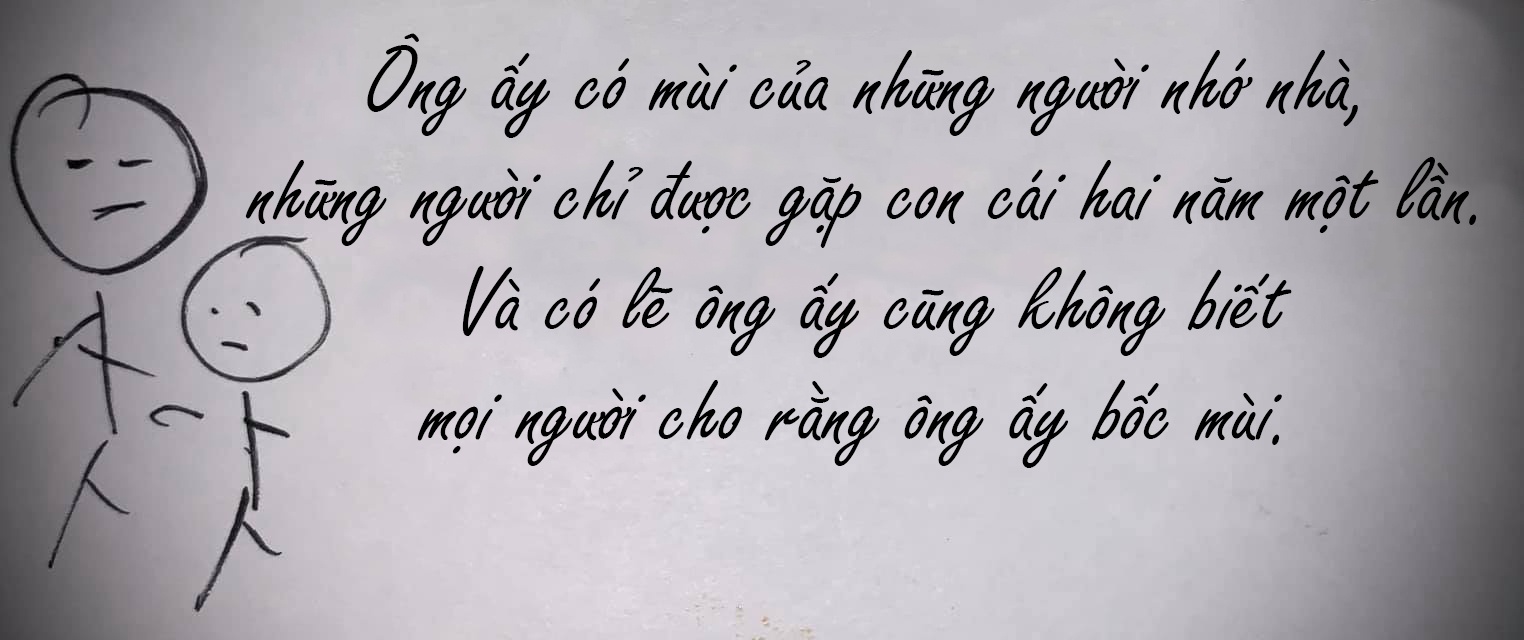 Ông ấy có mùi của những người nhớ nhà,
những người chỉ được gặp con cái hai năm một lần.
Và có lẽ ông ấy cũng không biết
mọi người cho rằng ông ấy bốc mùi.